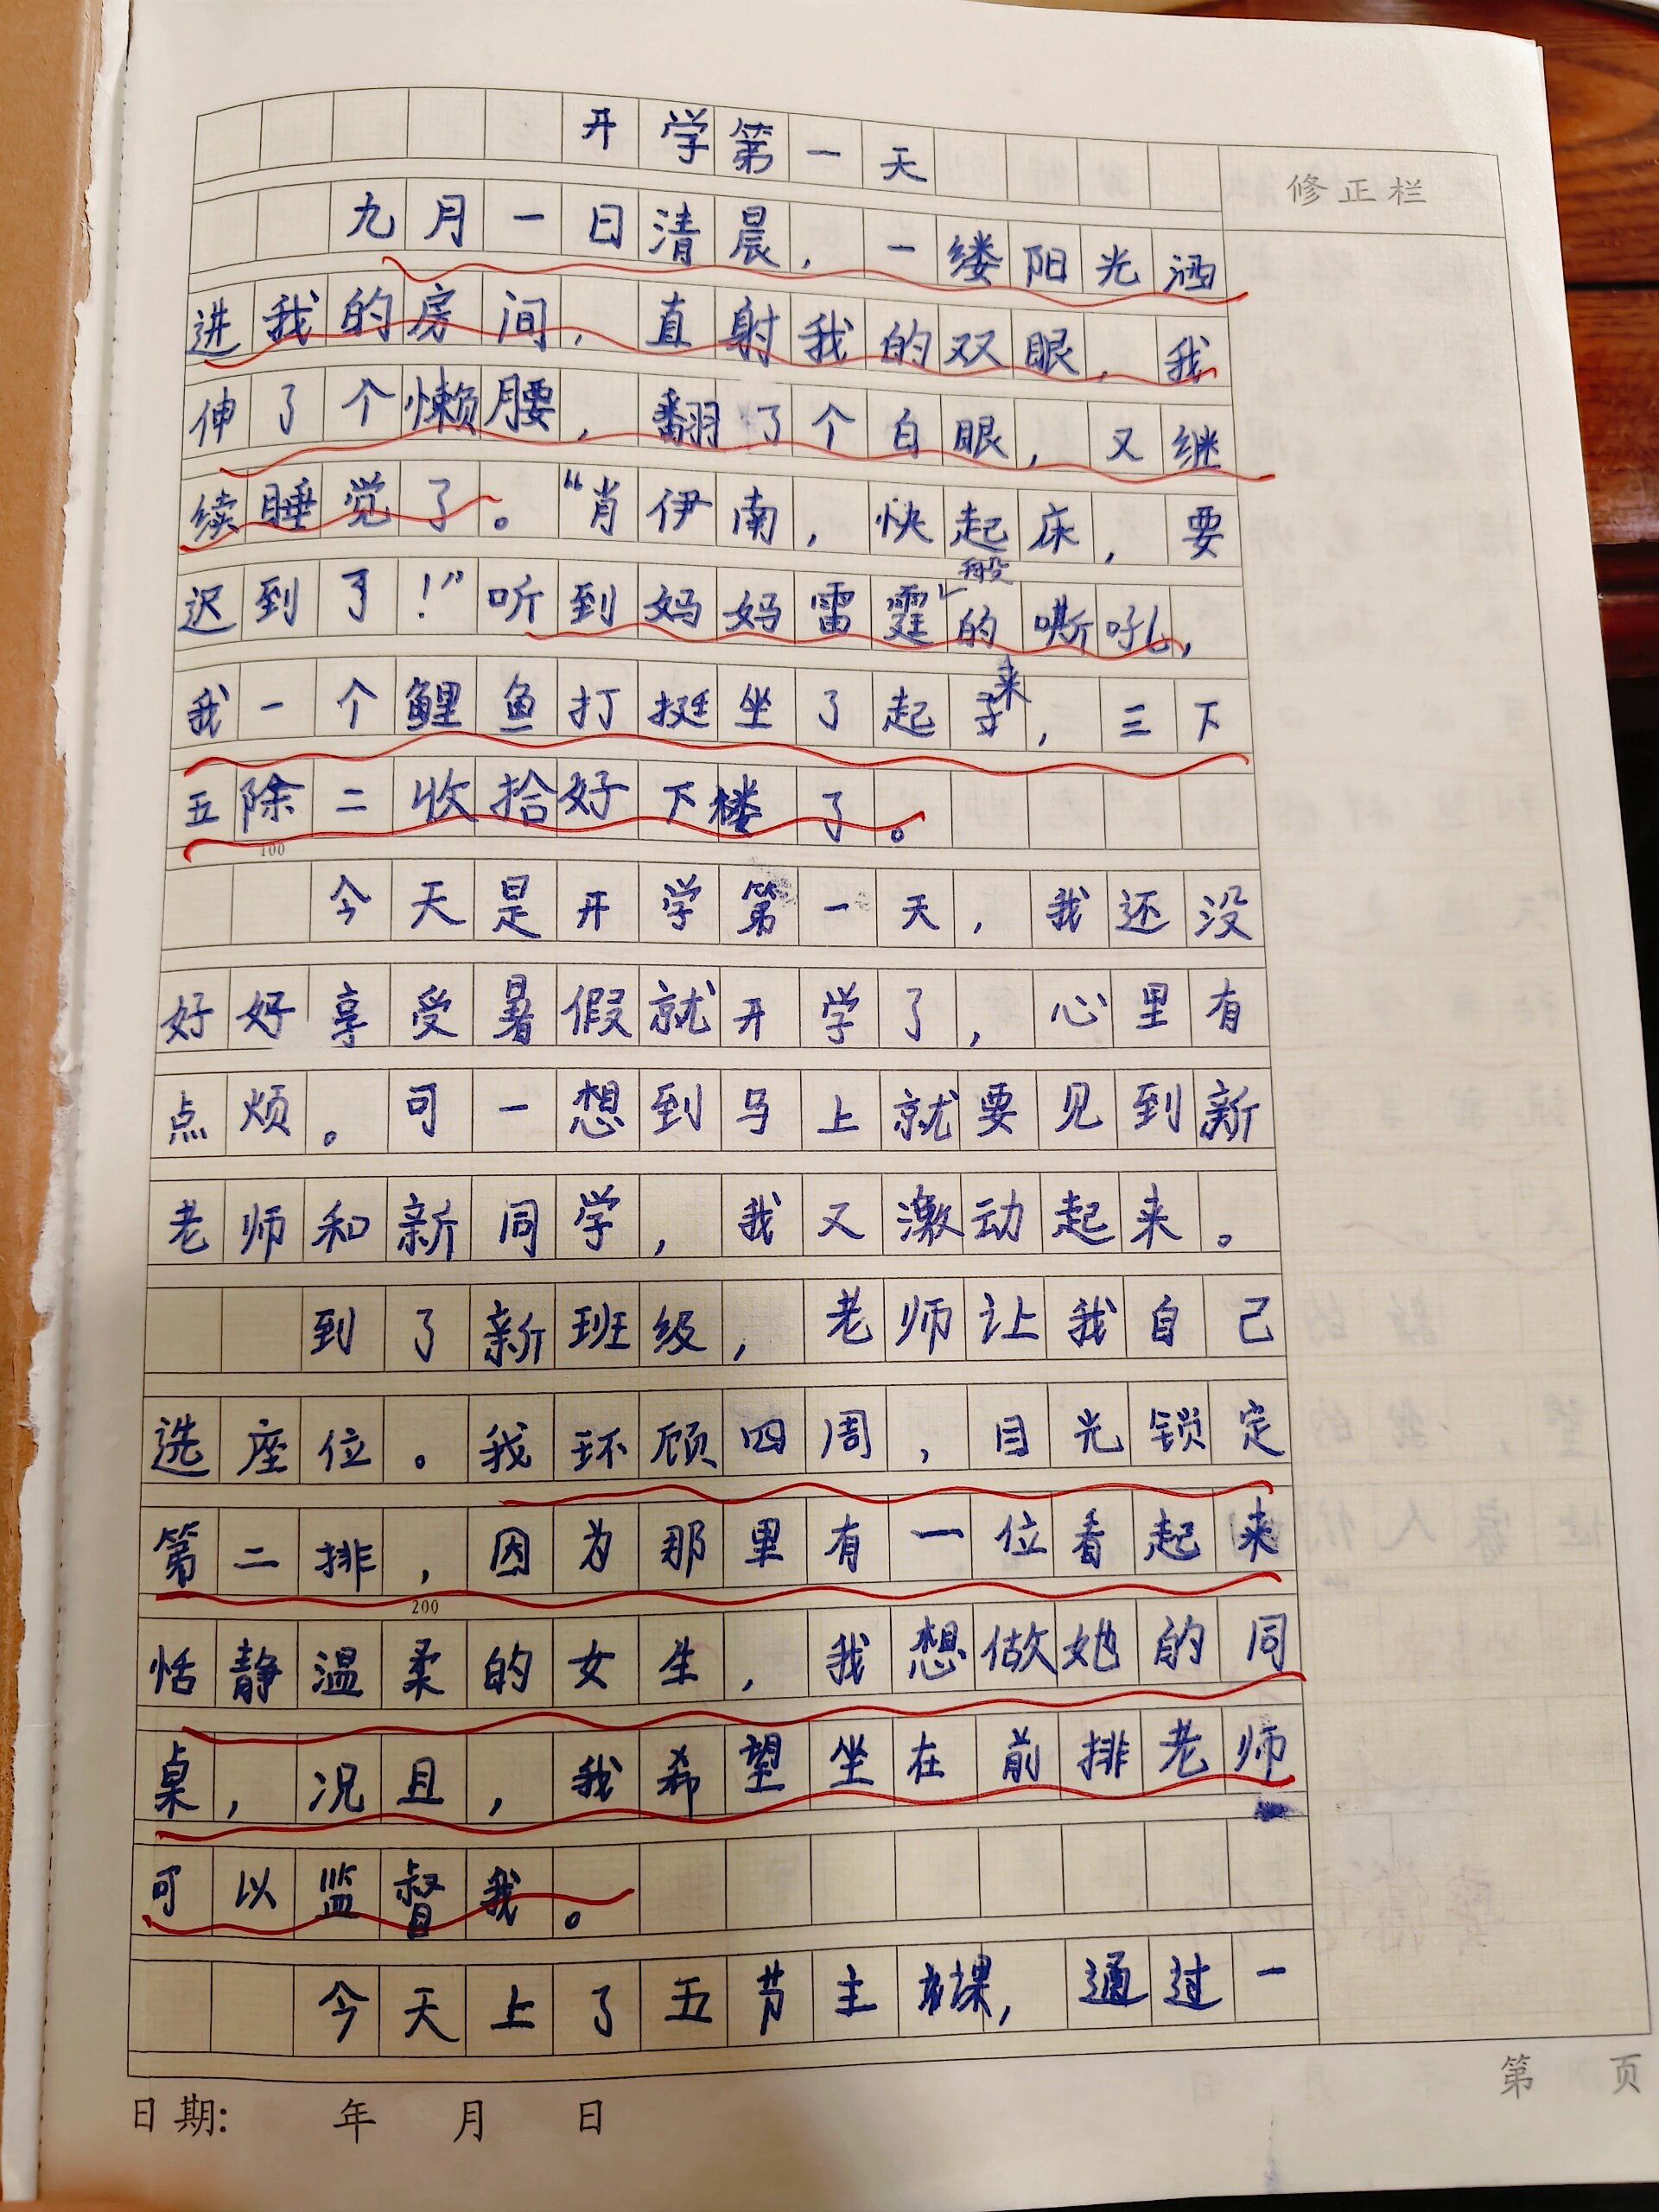 开学第一天
修正栏
九月一日清晨，一缕阳光洒
进我的房间，直射我的双眼，我
伸了个懒腰，翻了个白眼，又继
续睡觉了。“肖伊南，快起床，要
迟到了！”听到妈妈雷霆般的嘶吼，
我一个鲤鱼打挺坐了起来，三下
五除二收拾好下楼了。
100
今天是开学第一天，我还没
好好享受暑假就开学了，心里有
点烦。可一想到马上就要见到新
老师和新同学，我又激动起来。
到了新班级，老师让我自己
选座位。我环顾四周，目光锁定
第二排，因为那里有一位看起来
200
恬静温柔的女生，我想做她的同
桌，况且，我希望坐在前排老师
可以监督我。
今天上了五节主课，通过一
第 页
日期： 年 月 日